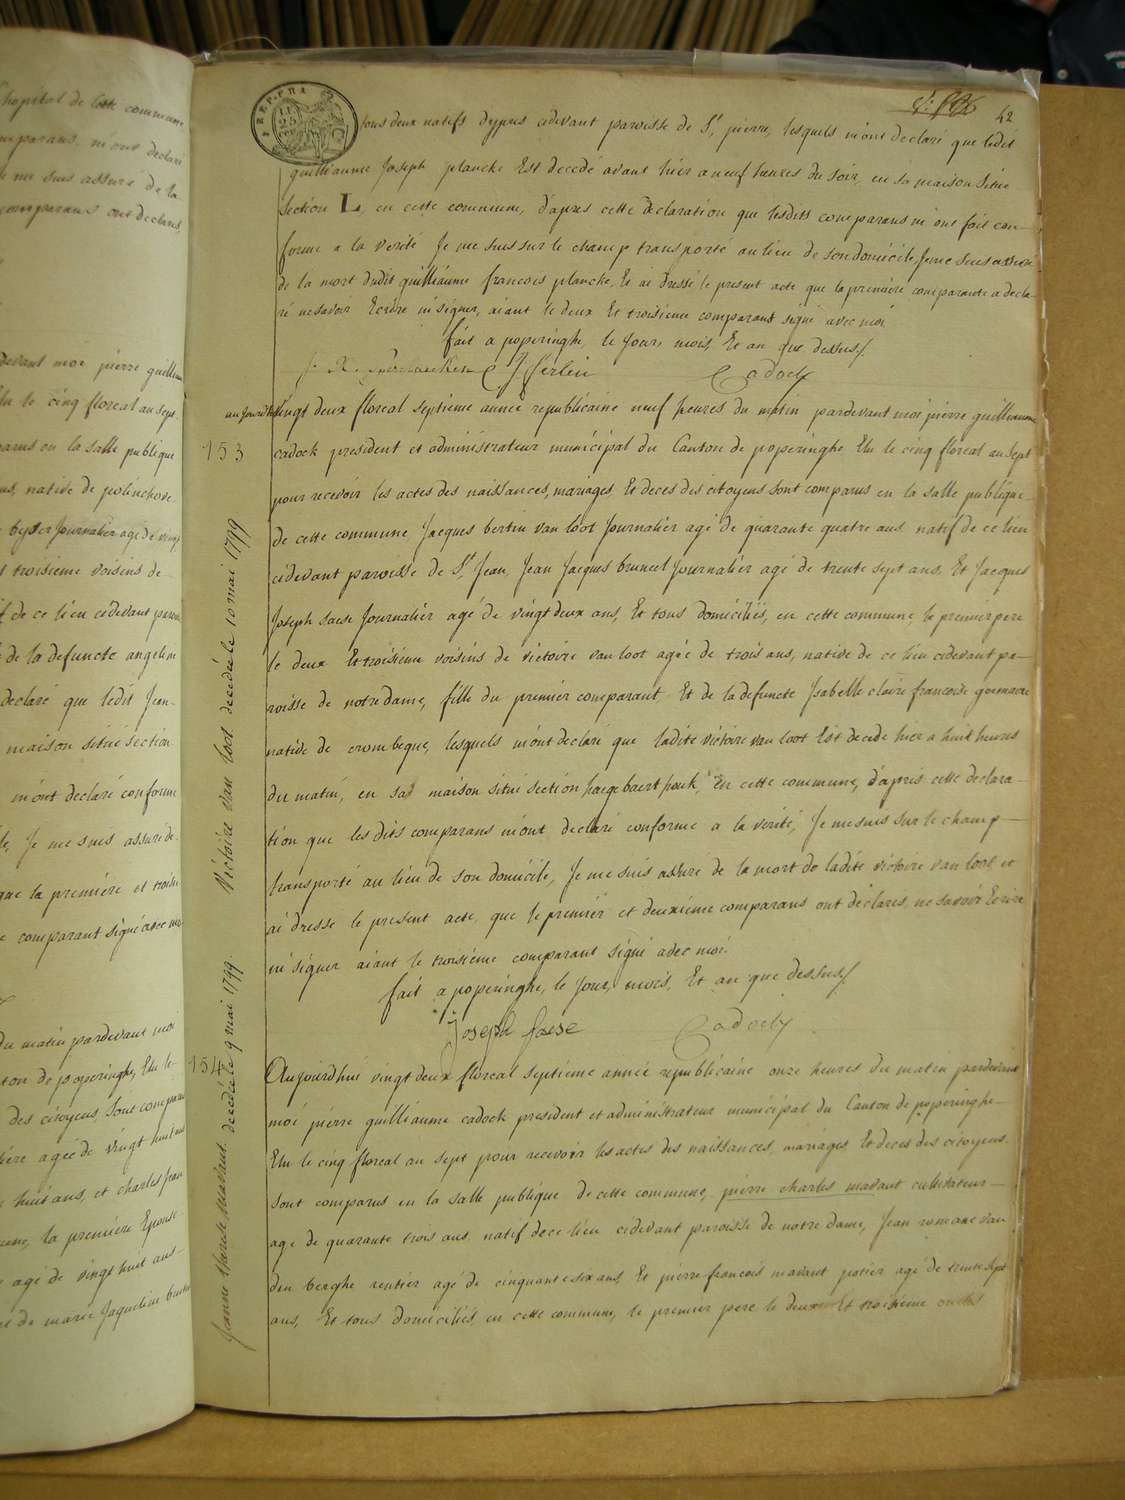 hopital de cette commune
comparans, m'ont declaré
me suis assuré de la
comparans ont declarés
devant moi pierre guilliaum
Elu le cinq floreal an sept
parus en la salle publique
native de polinchove
journalier agé de vingt
troisieme voisins de
de ce lieu cidevant parois
de la defuncte angeline
declaré que ledit Jean
maison situé section
m'ont declaré conforme
Je me suis assuré de
que la premiére et troisie
comparant signé avec moi
du matin pardevant moi
ton de poperinghe, Elu le
des citoyens, Sont comparu
agée de vingt huit ans
huit ans, et charles Jean
la premiére Epouse
agé de vingt huit ans
de marie Jaqueline
42
REP. FRA
tous deux natifs d'ypres cidevant paroisse de St. pierre, lesquels m'ont declaré que ledit
guilliaume Joseph plancke Est decedé avant hier a neuf heures du soir, en sa maison située
section L, en cette commune, d'apres cette declaration que lesdits comparans m'ont fait con-
forme a la verité Je me suis sur le champ transporté au lieu de son domicile, Je me suis assuré
de la mort dudit guilliaume francois plancke, Et ai dressé le present acte que la premiere comparante a decla-
ré ne savoir Ecrire ni signer, aiant le deux Et troisieme comparant signé avec moi
fait a poperinghe, le Jour, mois, Et an que dessus/.
Cadock
aujourdhui vingt deux floreal septieme année republicaine neuf heures du matin pardevant moi pierre guilliaume
153
cadock president et administrateur municipal du Canton de poperinghe Elu le cinq floreal an sept
pour recevoir les actes des naissances, mariages, Et deces des citoyens sont comparus en la salle publique
de cette commune Jacques bertin van loot Journalier agé de quarante quatre ans natif de ce lieu
cidevant paroisse de St. Jean, Jean Jacques bruneel Journalier agé de trente sept ans, Et Jacques
Joseph saese Journalier agé de vingt deux ans, Et tous domiciliés, en cette commune le premier pere
le deux Et troisieme voisins de victoire van loot agée de trois ans, native de ce lieu cidevant pa-
roisse de notre dame, fille du premier comparant Et de la defuncte Isabelle claire francoise goemaere
native de crombeque, lesquels m'ont declaré que ladite victoire van loot Est decedé hier a huit heures
du matin, en sa maison situé section haegebaert houk, En cette commune, d'apres cette declara-
tion que lesdits comparans m'ont declaré conforme a la verité, Je me suis sur le champ
transporté au lieu de son domicile, Je me suis assuré de la mort de ladite victoire van loot et
ai dressé le present acte, que le premiér et deuxiéme comparans ont declarés, ne savoir Ecrire
ni signer aiant le troisiéme comparant signé avec moi
fait a poperinghe, le Jour, mois, Et an que dessus/.
Joseph Saese Cadock
Victoire van loot decedée le 10 mai 1799
154
Aujourdhui vingt deux floreal septieme année republicaine onze heures du matin pardevant
moi pierre guilliaume cadock president et administrateur municipal du Canton de poperinghe
Elu le cinq floreal an sept pour recevoir les actes des naissances, mariages Et deces des citoyens
sont comparus en la salle publique de cette commune, pierre charles mavaut cultivateur
agé de quarante trois ans natif de ce lieu cidevant paroisse de notre dame, Jean romane van
den berghe rentier agé de cinquante six ans Et pierre francois mavaut potier agé de trente sept
ans, Et tous domiciliés, en cette commune, le premier pere le deux Et troisieme oncles
Jeanne therese mavaut decedée le 9 mai 1799